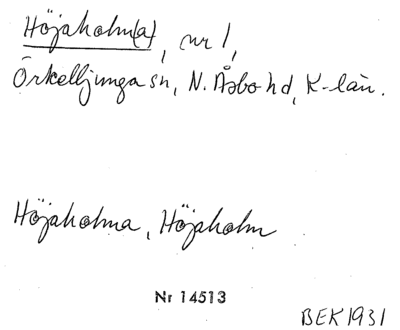 Höjaholm(a), nr 1,
Örkelljunga sn, N. Åsbo hd, K-län.
Höjaholma, Höjaholm
Nr 14513
BEK 1931